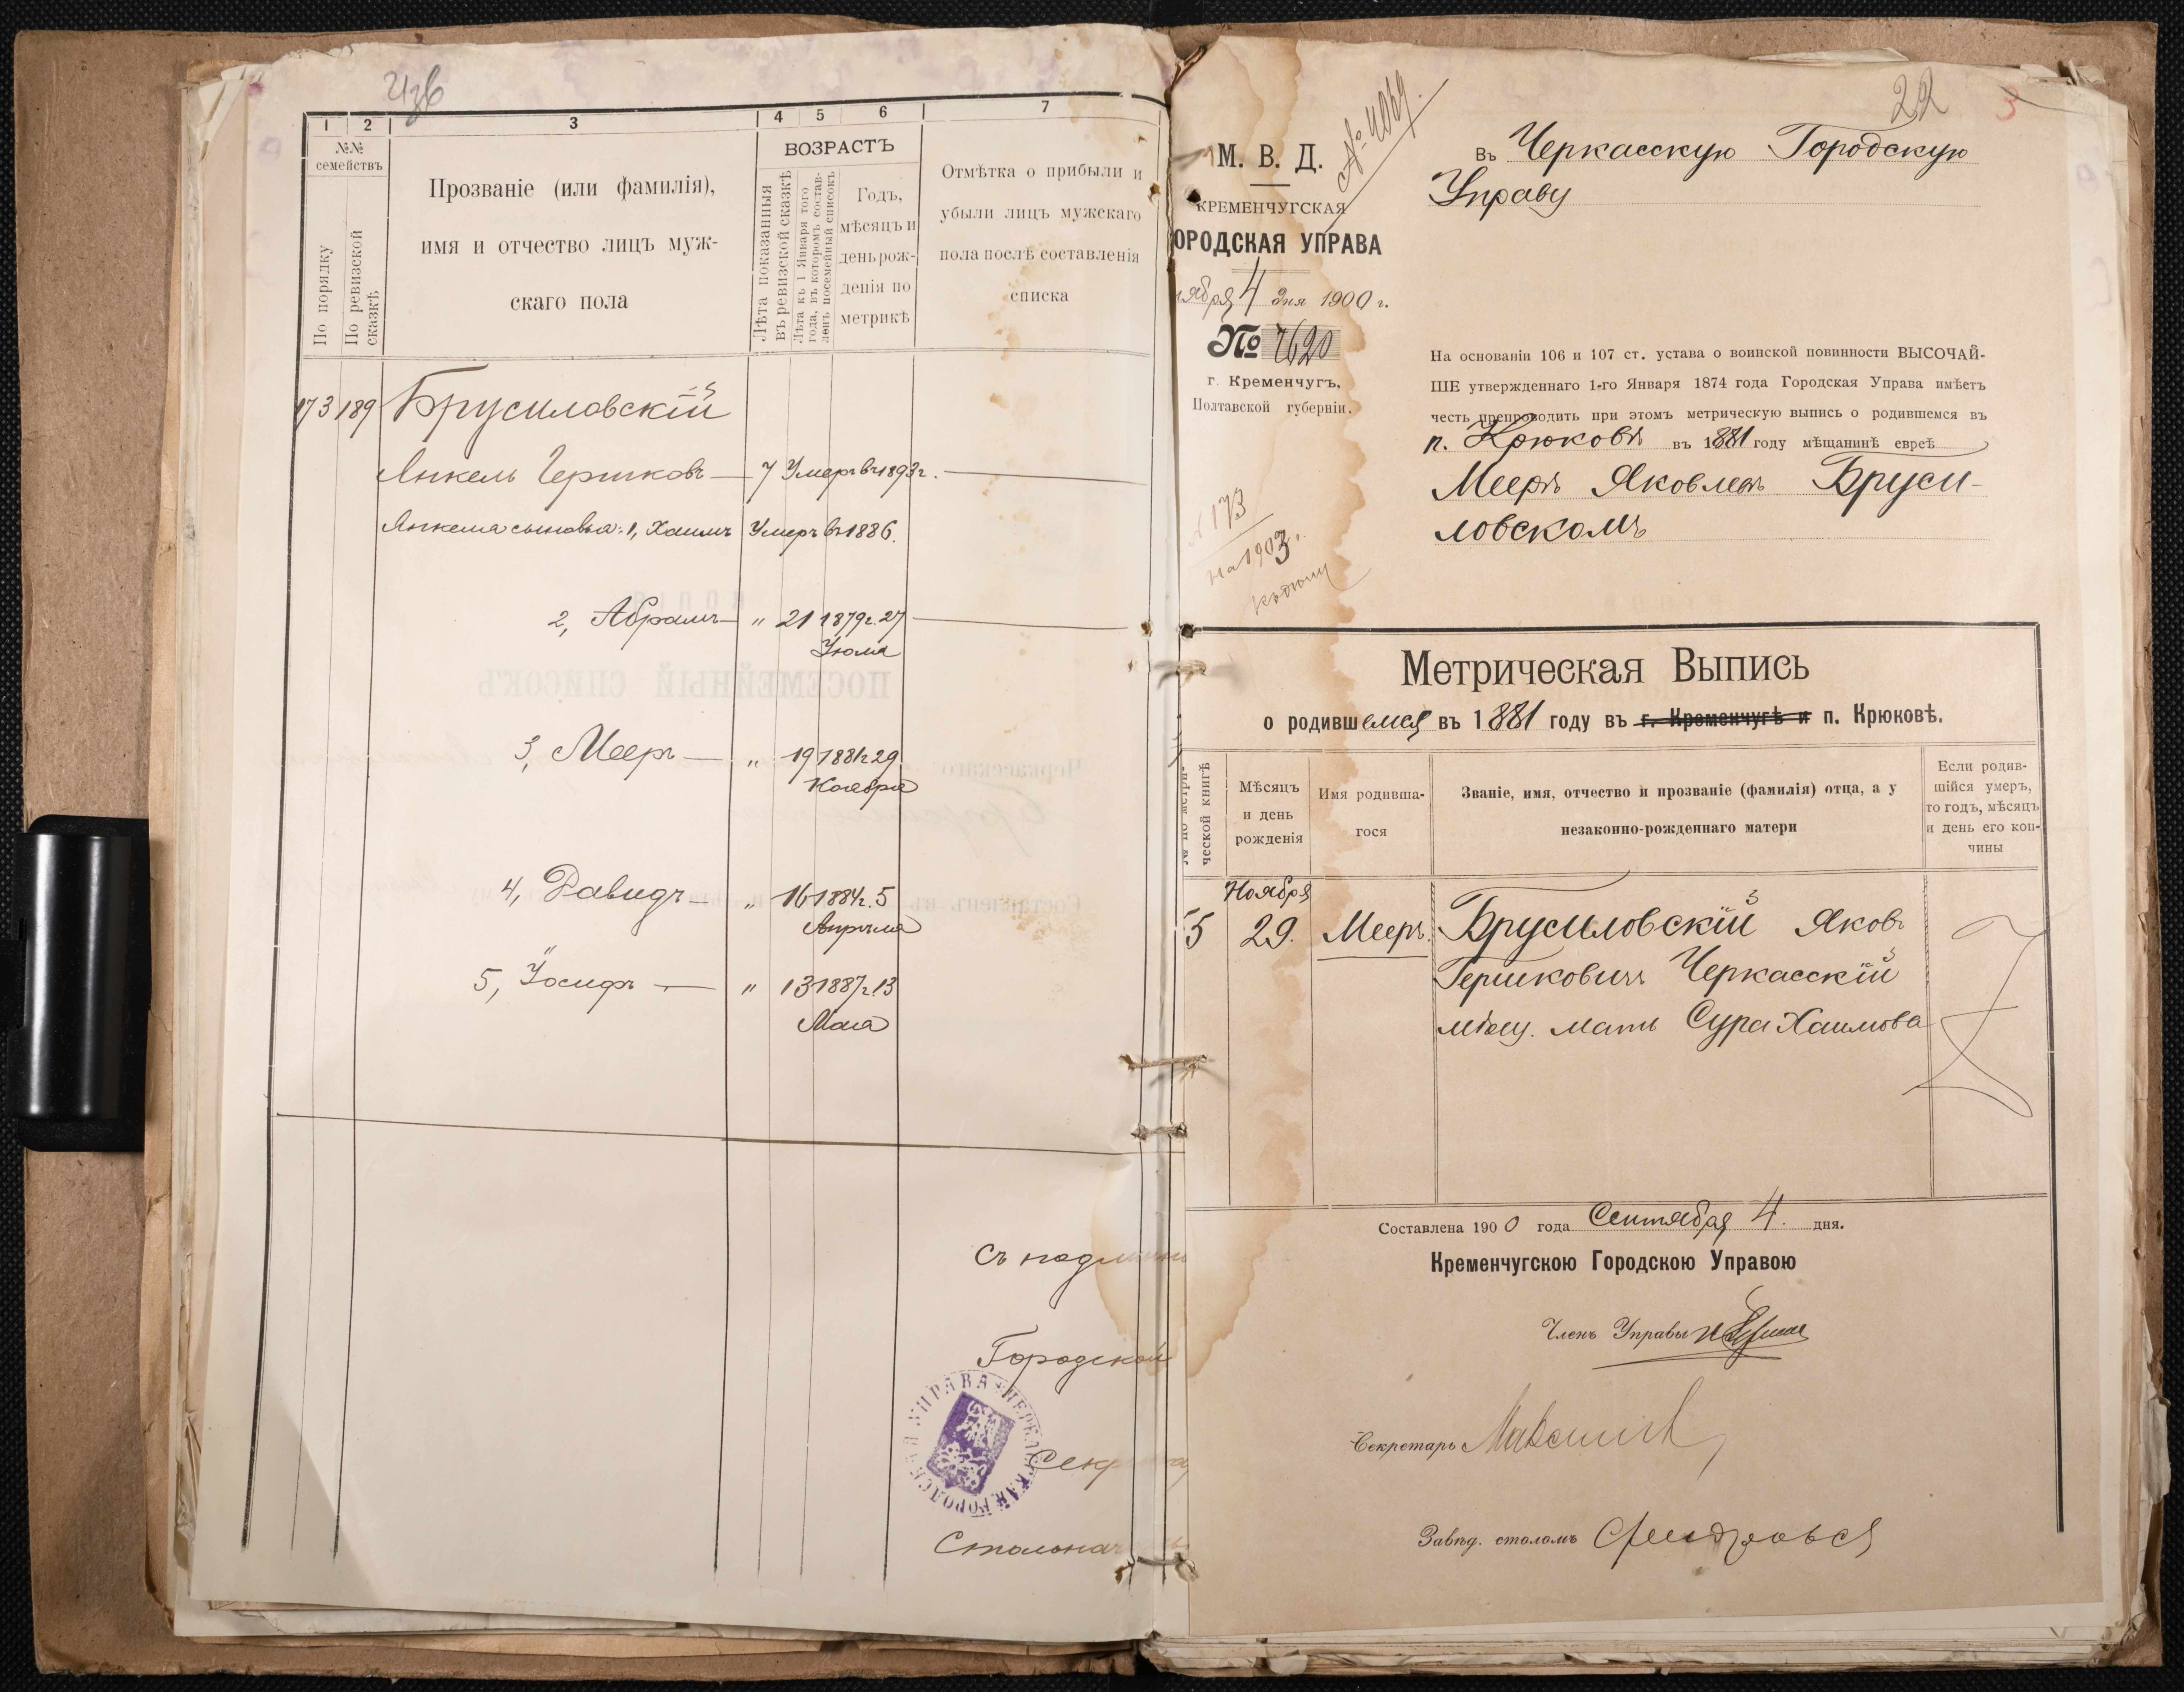 1 2 3 4 5 6 7
№№ семействъ
По порядку
По ревизской сказкѣ
Прозваніе (или фамилія),
имя и отчество лицъ муж-
скаго пола
ВОЗРАСТЪ
Лѣта показанныя
въ ревизской сказкѣ
Лѣта къ 1 Января того
года, въ которомъ состав-
ленъ посемейный списокъ
Годъ,
мѣсяцъ и
день рож-
денія по
метрикѣ
Отмѣтка о прибыли и
убыли лицъ мужскаго
пола послѣ составленія
списка
173 189 Брусиловскій
Янкель Гершковъ — 7 Умеръ въ 1893 г.
Янкеля сыновья: 1, Хаимъ Умеръ въ 1886.
2, Абрамъ — " 21 1879 г. 27
Іюля
3, Мееръ — " 19 1881 г. 29
Ноября
4, Давидъ — " 16 1884 г. 5
Апрѣля
5, Іосифъ — " 13 1887 г. 13
Мая
Съ подлинны
Городской
Секр
Столонач
22
3
№ 4069.
М. В. Д.
КРЕМЕНЧУГСКАЯ
ОРОДСКАЯ УПРАВА
ября 4 дня 1900 г.
№ 7620
г. Кременчугъ,
Полтавской губерніи.
№ 173
на 1903.
Въ Черкасскую Городскую
Управу
На основаніи 106 и 107 ст. устава о воинской повинности ВЫСОЧАЙ-
ШЕ утвержденнаго 1-го Января 1874 года Городская Управа имѣетъ
честь препроводить при этомъ метрическую выпись о родившемся въ
п. Крюковѣ въ 1881 году мѣщанинѣ евреѣ
Меерѣ Яковлевѣ Бруси-
ловскомъ
Метрическая Выпись
о родившемся въ 1881 году въ г. Кременчугѣ и п. Крюковѣ.
№ по метри-
ческой книгѣ
Мѣсяцъ
и день
рожденія
Имя родивша-
гося
Званіе, имя, отчество и прозваніе (фамилія) отца, а у
незаконно-рожденнаго матери
Если родив-
шійся умеръ,
то годъ, мѣсяцъ
и день его кон-
чины
Ноября
5 29. Мееръ. Брусиловскій Яковъ
Гершковичъ Черкасскій
мѣщ. мать Сура Хаимова
Составлена 1900 года Сентября 4. дня.
Кременчугскою Городскою Управою
Членъ Управы
Секретарь
Завѣд. столомъ